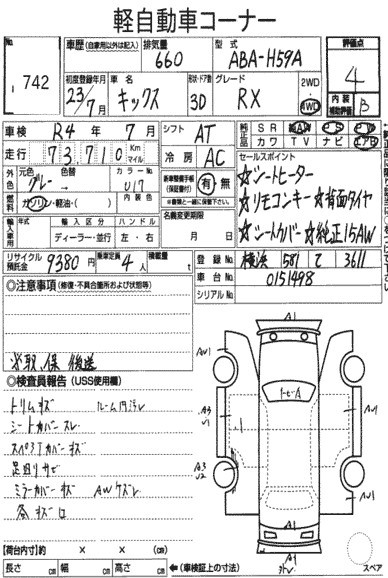 軽自動車コーナー
No. 742
車歴(自家用以外は記入) 排気量 660 型式 ABA-H59A 評価点 4
初度登録年月 23/7月 車名 キックス 形状・ドア数 3D グレード RX 2WD・4WD 内装補助評価 B
車検 R4年 7月 シフト AT 純正品 SR AW PS PW
走行 73,710 Km マイル 冷房 AC カワ TV ナビ エアB
外色 元色 グレー→ 色替 カラーNo. U17 内装色 新車整備手帳(保証書付) 有・無 ※書類と一緒に保管下さい。
燃料 ガソリン・軽油・( ) 名義変更期限 月 日
輸入車用 年式 輸入区分 ディーラー・並行 ハンドル 左・右
セールスポイント
☆シートヒーター
☆リモコンキー ☆背面タイヤ
☆シートカバー ☆純正15AW
リサイクル預託金 9380円 乗車定員 4人 積載量 t
登録No. 横浜 581 て 3611
車台No. 0151498
シリアルNo.
◎注意事項(修復・不具合箇所および状態等)
※取、保 後送
◎検査員報告(USS使用欄)
トリムキズ ルーム内汚レ
シートカバースレ
スペアTカバーキズ
足回りサビ
ミラーカバーキズ AWケズレ
各キズ
A1
AU1
トビA
A3
U2
AU1
A3
U2
AU1
A1
スペア
【荷台内寸】約 × × (cm)
長さ cm 幅 cm 高さ cm ←(車検証上の寸法)